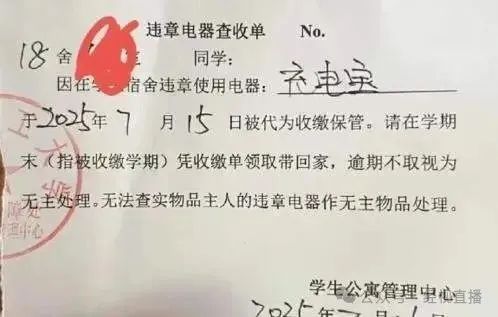 违章电器查收单 No.
18舍 同学:
因在学 宿舍违章使用电器: 充电宝
于2025年7月15日被代为收缴保管。请在学期
末(指被收缴学期)凭收缴单领取带回家,逾期不取视为
无主处理。无法查实物品主人的违章电器作无主物品处理。
学生公寓管理中心
2025年7月
工大学
障处
管理中心
公众号
直播